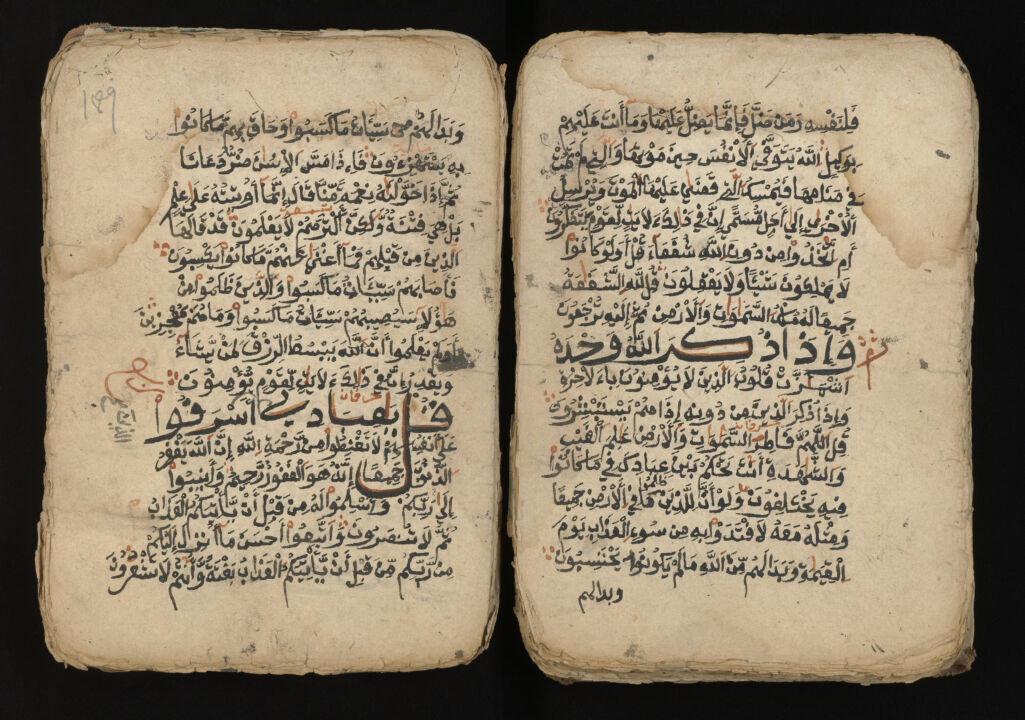 فلنفسه ومن ضل فإنما يضل عليها وما أنت عليهم
بوكيل الله يتوفى الأنفس حين موتها والتي لم تمت
في منامها فيمسك التي قضى عليها الموت ويرسل
الأخرى إلى أجل مسمى إن في ذلك لأيت لقوم يتفكرون
أم اتخذوا من دون الله شفعاء قل أولو كانوا
لا يملكون شيئا ولا يعقلون قل لله الشفعة
جميعا له ملك السموت والأرض ثم إليه ترجعون
وإذا ذكر الله وحده
اشمأزت قلوب الذين لا يؤمنون بالأخرة
وإذا ذكر الذين من دونه إذا هم يستبشرون
قل اللهم فاطر السموت والأرض علم الغيب
والشهدة أنت تحكم بين عبادك في ما كانوا
فيه يختلفون ولو أن للذين ظلموا ما في الأرض جميعا
ومثله معه لافتدوا به من سوء العذاب يوم
القيمة وبدا لهم من الله ما لم يكونوا يحتسبون
وبدالهم
١٤٩
وبدا لهم سيئات ما كسبوا وحاق بهم ما كانوا
به يستهزءون فإذا مس الإنسن ضر دعانا
ثم إذا خولنه نعمة منا قال إنما أوتيته على علم
بل هي فتنة ولكن أكثرهم لا يعلمون قد قالها
الذين من قبلهم فما أغنى عنهم ما كانوا يكسبون
فأصابهم سيئات ما كسبوا والذين ظلموا من
هؤلاء سيصيبهم سيئات ما كسبوا وما هم بمعجزين
أولم يعلموا أن الله يبسط الرزق لمن يشاء
ويقدر إن في ذلك لأيت لقوم يؤمنون
قل يعبادي الذين أسرفوا
على أنفسهم لا تقنطوا من رحمة الله إن الله يغفر
الذنوب جميعا إنه هو الغفور الرحيم وأنيبوا
إلى ربكم وأسلموا له من قبل أن يأتيكم العذاب
ثم لا تنصرون واتبعوا أحسن ما أنزل إليكم
من ربكم من قبل أن يأتيكم العذاب بغتة وأنتم لا تشعرون